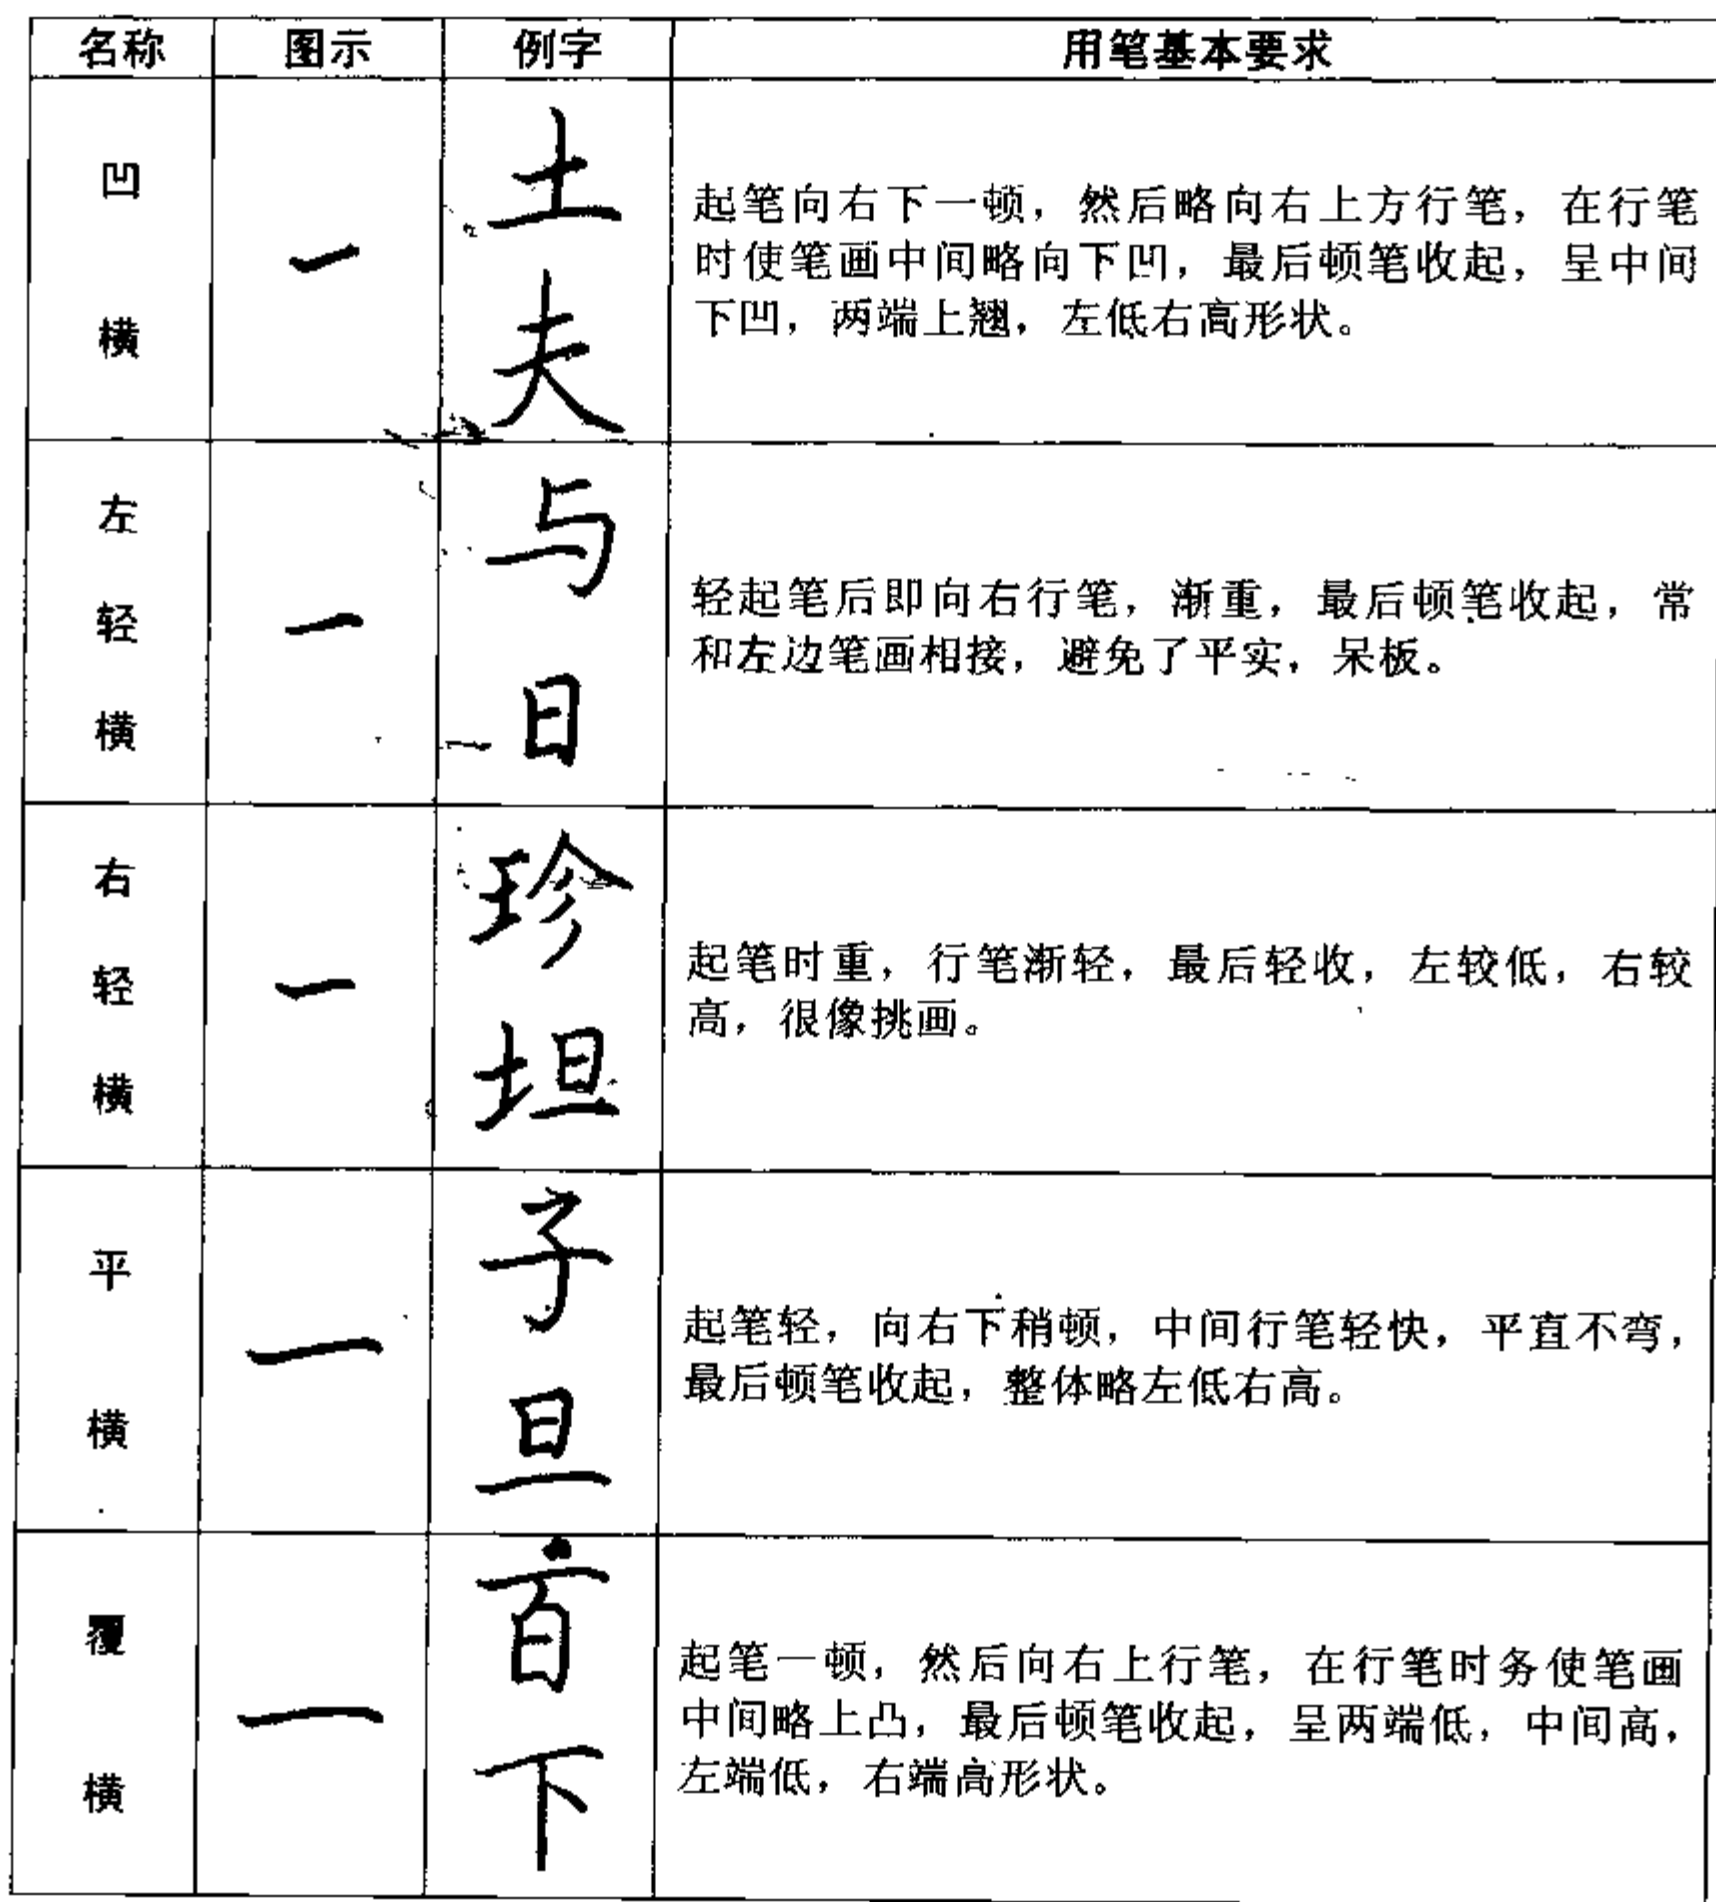 名称 图示 例字 用笔基本要求
凹横 一 土夫
起笔向右下一顿，然后略向右上方行笔，在行笔
时使笔画中间略向下凹，最后顿笔收起，呈中间
下凹，两端上翘，左低右高形状。
左轻横 一 与日
轻起笔后即向右行笔，渐重，最后顿笔收起，常
和左边笔画相接，避免了平实，呆板。
右轻横 一 珍坦
起笔时重，行笔渐轻，最后轻收，左较低，右较
高，很像挑画。
平横 一 子旦
起笔轻，向右下稍顿，中间行笔轻快，平直不弯，
最后顿笔收起，整体略左低右高。
覆横 一 下
起笔一顿，然后向右上行笔，在行笔时务使笔画
中间略上凸，最后顿笔收起，呈两端低，中间高，
左端低，右端高形状。